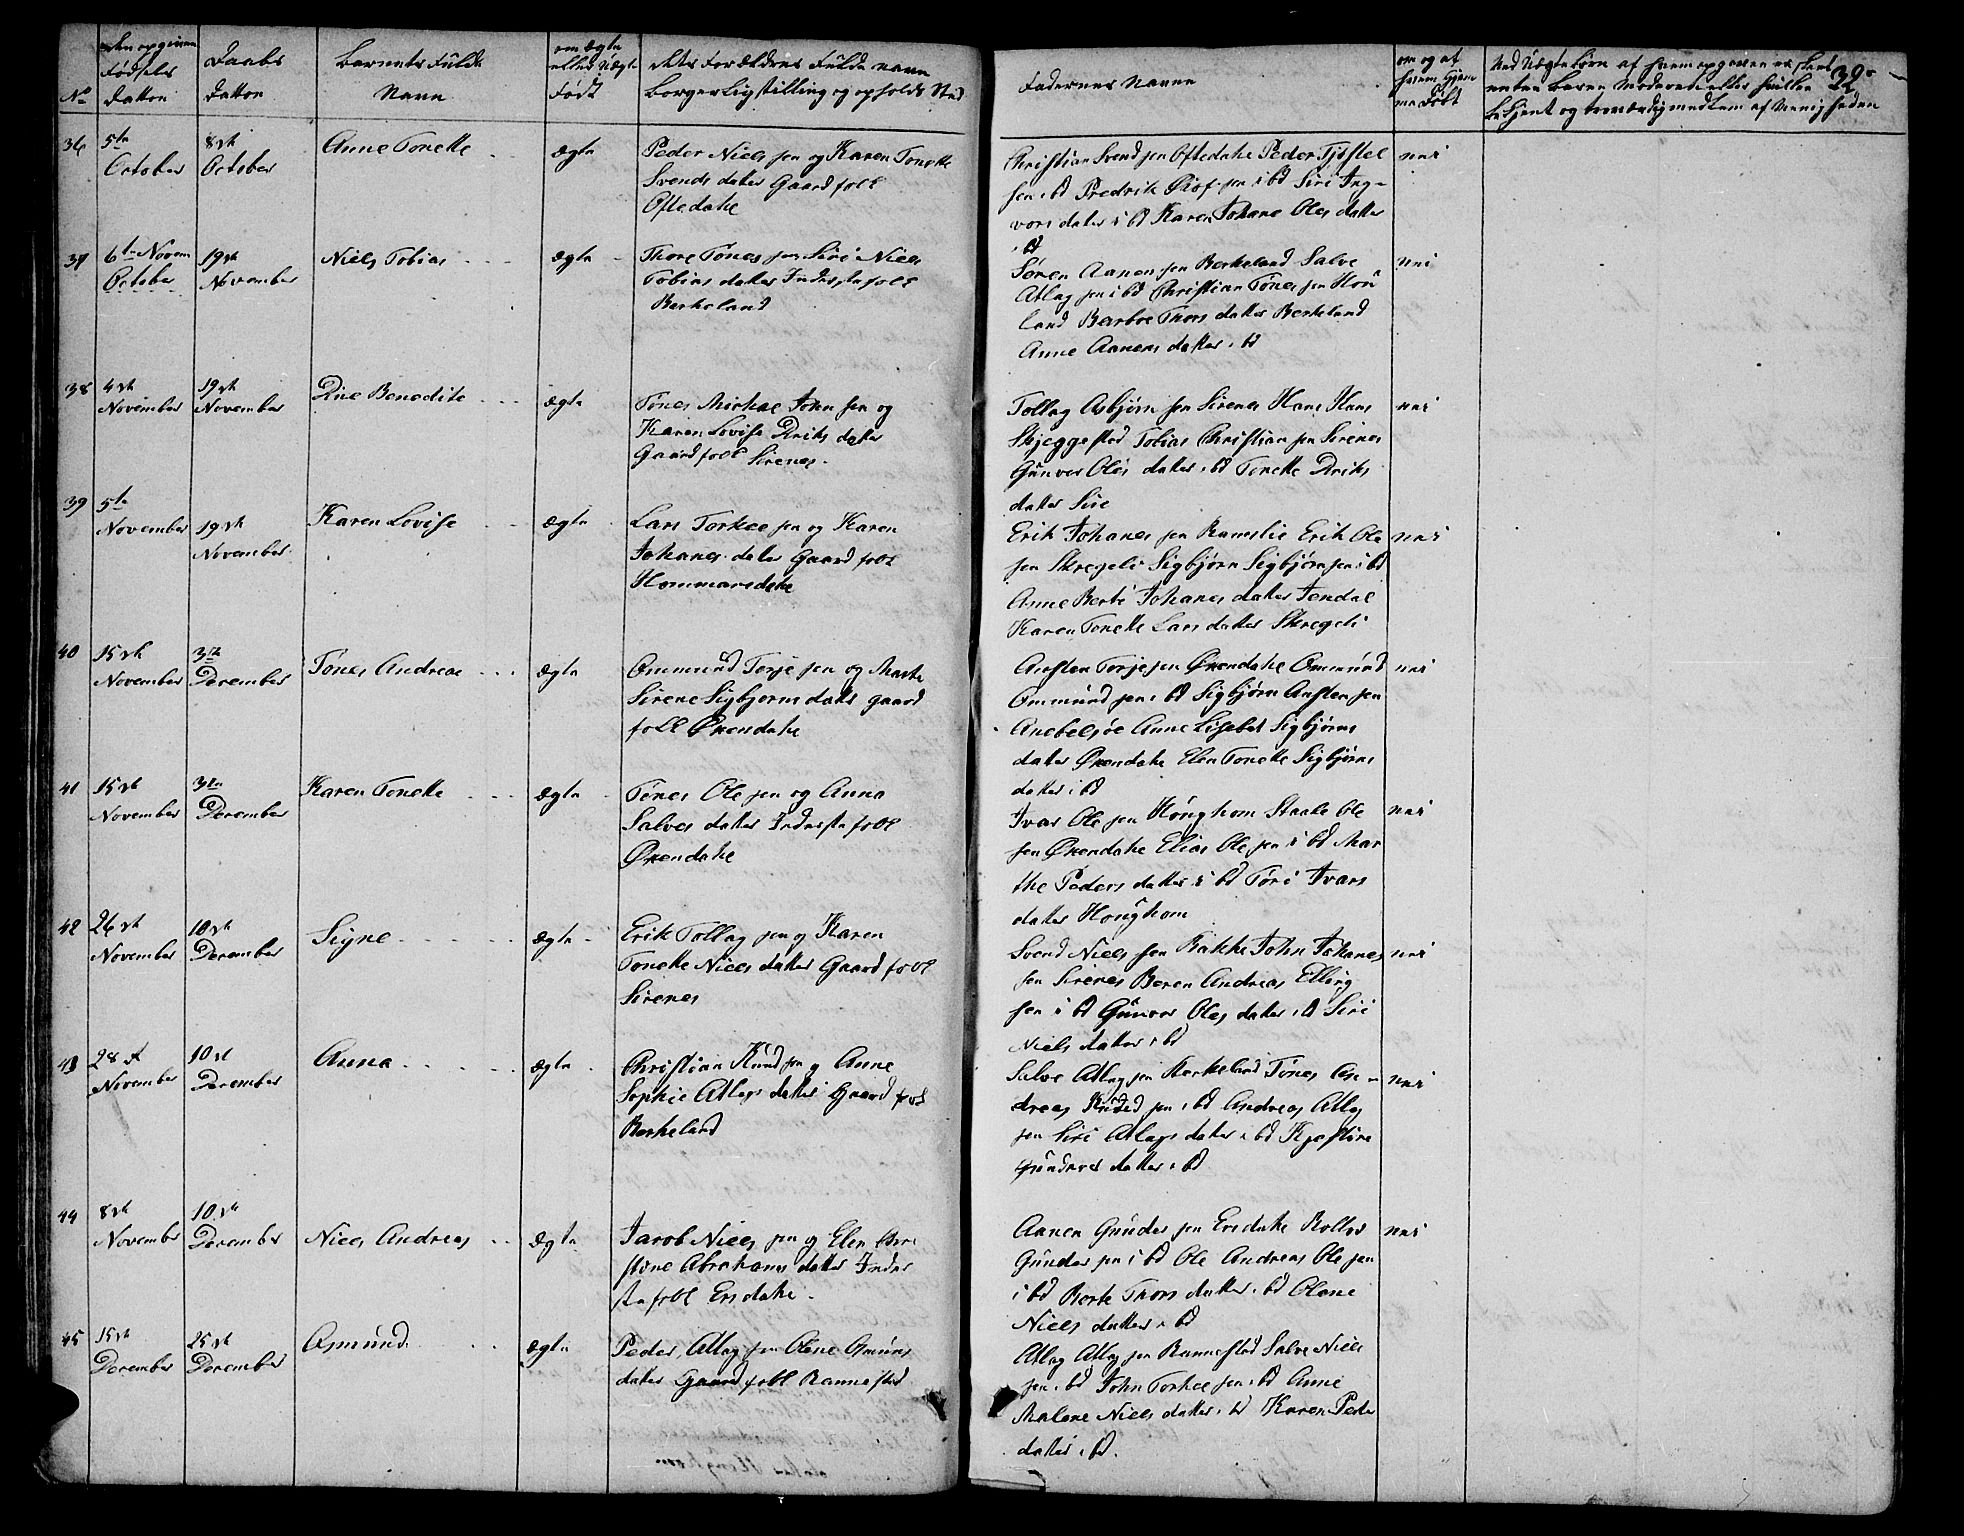 No
den opgivne Fødsels Datton
Daabs Datton
Barnets Fulde Navn
om ægte eller uægte Født
dets Forældres Fulde navn Borgerlig stilling og opholds Sted
Fadernes Navne
om og af hvem hjemme Døbt
Ved Uægte børn af hvem opgiven
32
36
5te October
8de October
Anne Tonette
ægte
Peder Niels sen og Karen Tonette
Svends datter Gaard folk
Oftedahl
Christian Svend sen Oftedahl Peder
sen i bd Fredrik Olof sen i bd Siri Ing-
vors datter i bd Karen Johane Oles datter
i bd
nei
37
6te Novem
October
19de
November
Niels Tobias
ægte
Thore Tønes sen Siri Niels
Tobias datter Inderste folk
Berkeland
Søren Aanen sen Berkeland Salve
Atlag sen i bd Christian Tønes sen Hou
land Barbro Thors datter Berkeland
Anne Aanens datter i bd
nei
38
4de
November
19de
November
Dine Benedite
ægte
Tønes Mickael John sen og
Karen Lovise Driks datter
Gaard folk Sirenes.
Tollag Asbjørn sen Sirenes Hans Hans
Skjeggestad Tobias Christian sen Sirenes
Gunvor Oles datter i bd Tonette Driks
datter Sire
nei
39
5te
November
19de
November
Karen Lovise
ægte
Lars Torkel sen og Karen
Johanes datter Gaard folk
Hommersdahl
Erik Johanes sen Ramslie Erik Ole
sen Skregeli Sigbjørn Sigbjørn sen i bd
Anne Berte Johanes datter Jendal
Karen Tonette Lars datter Skregeli
nei
40
15de
November
3de
December
Tønes Andreas
ægte
Ommund Torje sen og Marte
Sirene Sigbjorns datter gaard
folk Øxendahl
Ansten Torje sen Øxendahl Ommund
Ommund sen i bd Sigbjørn Ansten sen
Anebelsøe Anne Lisebet Sigbjørns
datter Øxendahl Elen Tonette Sigbjørns
datter i bd
nei
41
15de
November
3de
December
Karen Tonette
ægte
Tønes Ole sen og Anna
Salves datter Inderste folk
Øxendahl
Ivar Ole sen Hønghom Staale Ole
sen Øxendahl Elias Ole sen i bd Mar
the Peders datter i bd Tøri Ivars
datter Honghom
nei
42
26de
November
10de
December
Signe
ægte
Erik Tollag sen og Karen
Tonette Niels datter Gaard folk
Sirenes
Svend Niels sen Bakke John Johanes
sen Sirenes Beren Andreas Elling
sen i bd Gunvor Oles datter i bd Siri
Niels datter i bd
nei
43
28de
November
10de
December
Anna
ægte
Christian Knud sen og Anne
Sophie Atlags datter Gaard folk
Berkeland
Salve Atlag sen Berkeland Tønes An-
dreas Knud sen i bd Andreas Atlag
sen Siri Atlags datter i bd Kjestine
Gunders datter i bd
nei
44
8de
November
10de
December
Niels Andreas
ægte
Jacob Niels sen og Elen Chri
stine Abrahams datter Inder
ste folk Ersdahl.
Aanen Gunder sen Ersdahl Rollev
Gunder sen i bd Ole Andreas Ole sen
i bd Berte Thors datter i bd Olane
Niels datter i bd
nei
45
15de
December
25de
December
Asmund
ægte
Peder Atlag sen Olene Omuns
datter Gaard folk Rannestad
Atlag Atlag sen Rannestad Salve Niels
sen i bd John Torkel sen i bd Anne
Malene Niels datter i bd Karen Peder
datter i bd.